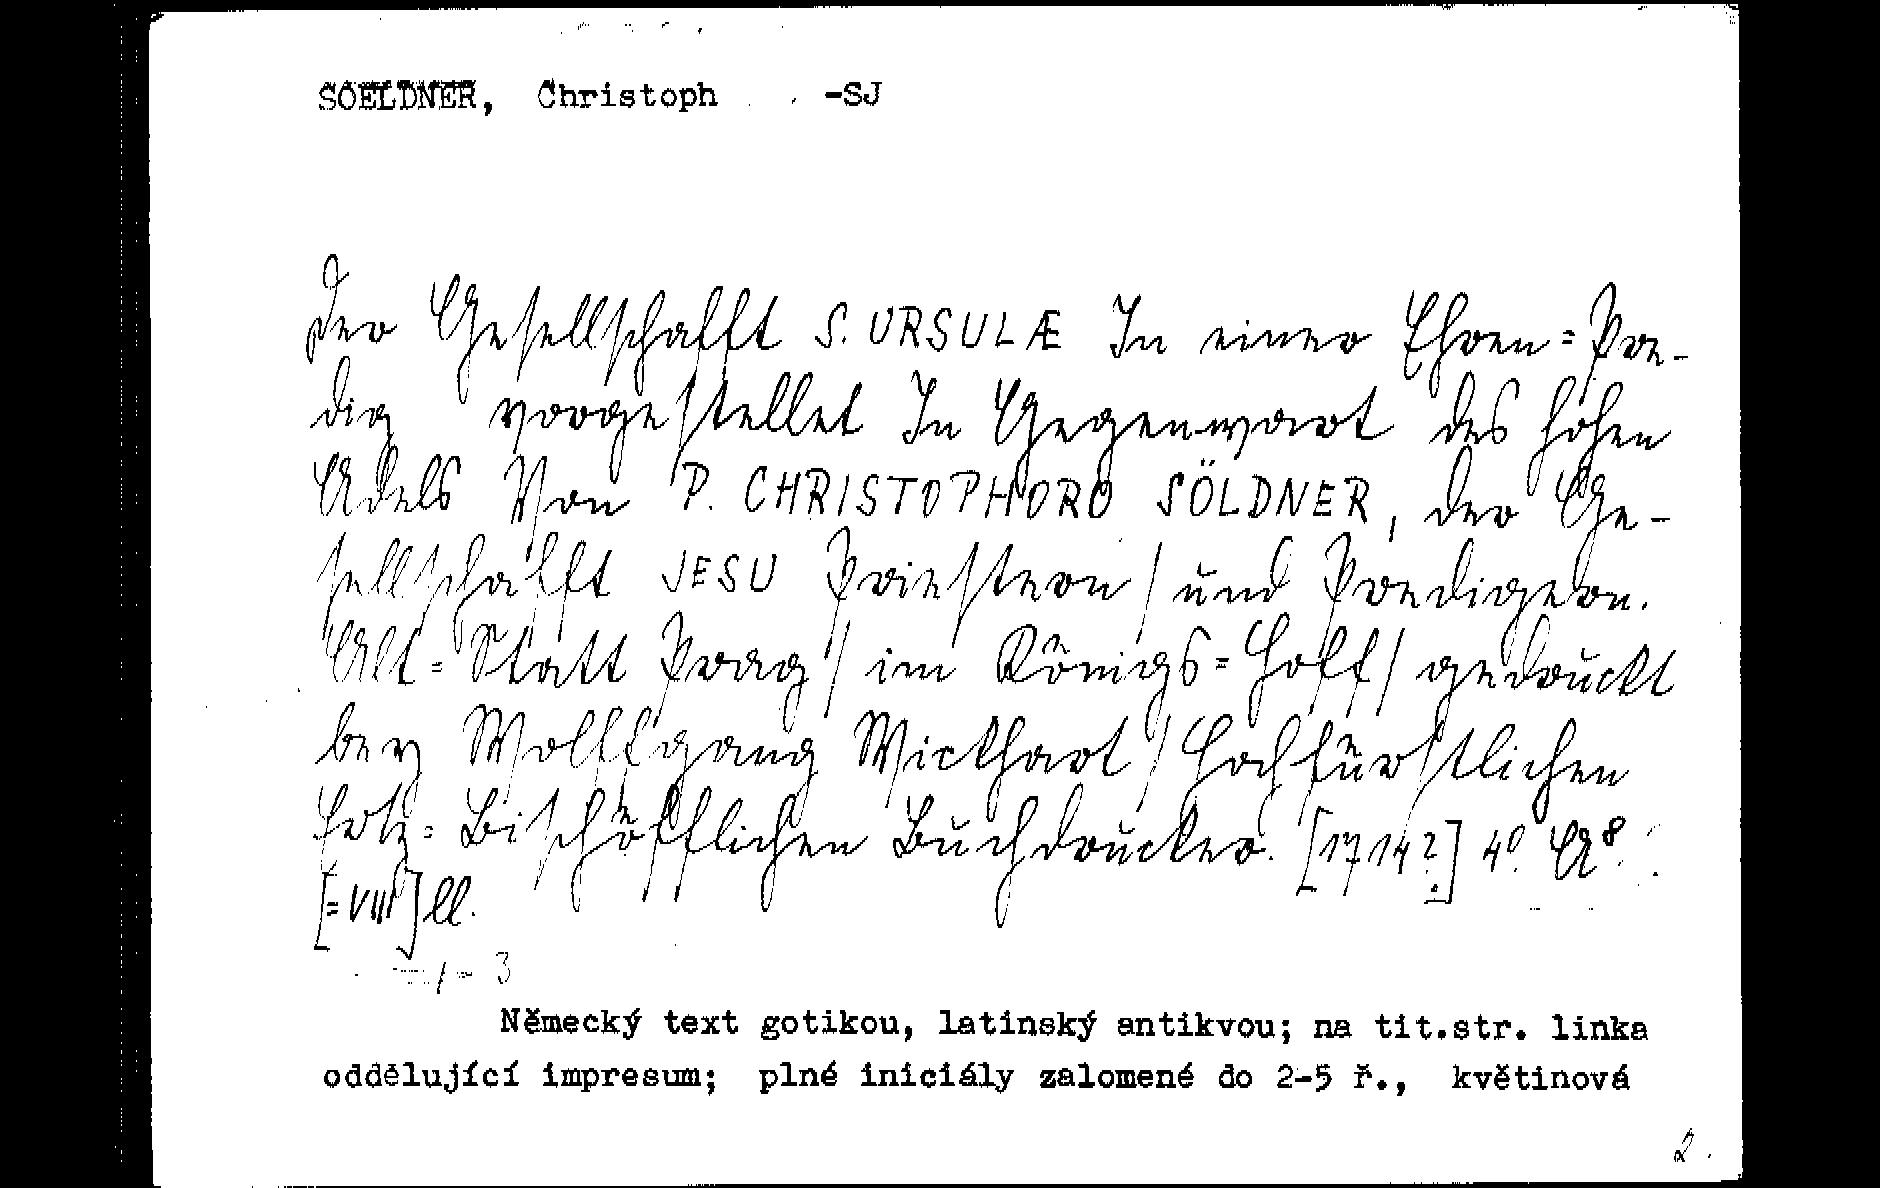 SOELDNER, Christoph -SJ
Der Gesellschafft S. URSULÆ In einer Ehren=Pre-
dig vorgestellet In Gegenwart des hohen
Adels Von P. CHRISTOPHORO SÖLDNER, der Ge-
sellschafft JESU Priestern / und Predigern.
Alt=Statt Prag / im Königs=Hoff / gedruckt
bey Wolffgang Wickhart / Hochfürstlichen
Ertz=Bischöfflichen Buchdrucker. [1714?] 4° A⁸.
[=VIII] ll.
3
Německý text gotikou, latinský antikvou; na tit.str. linka
oddělující impresum; plné iniciály zalomené do 2-5 ř., květinová
2.